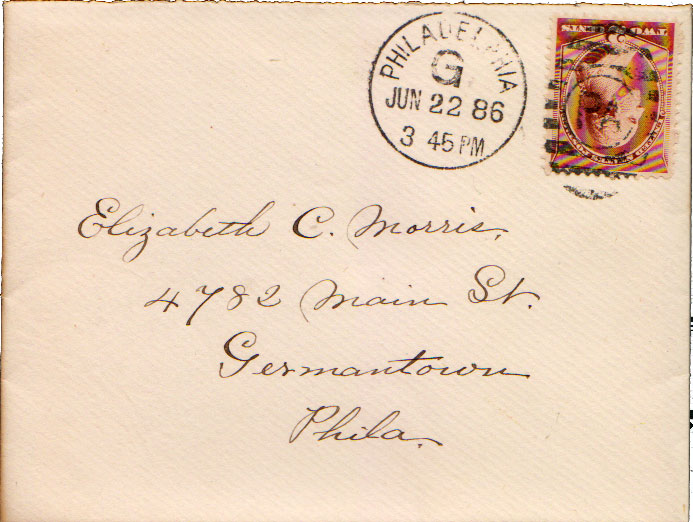 PHILADELPHIA
G
JUN 22 86
3 45 PM
TWO CENTS
Elizabeth C. Morris,
4782 Main St.
Germantown
Phila.